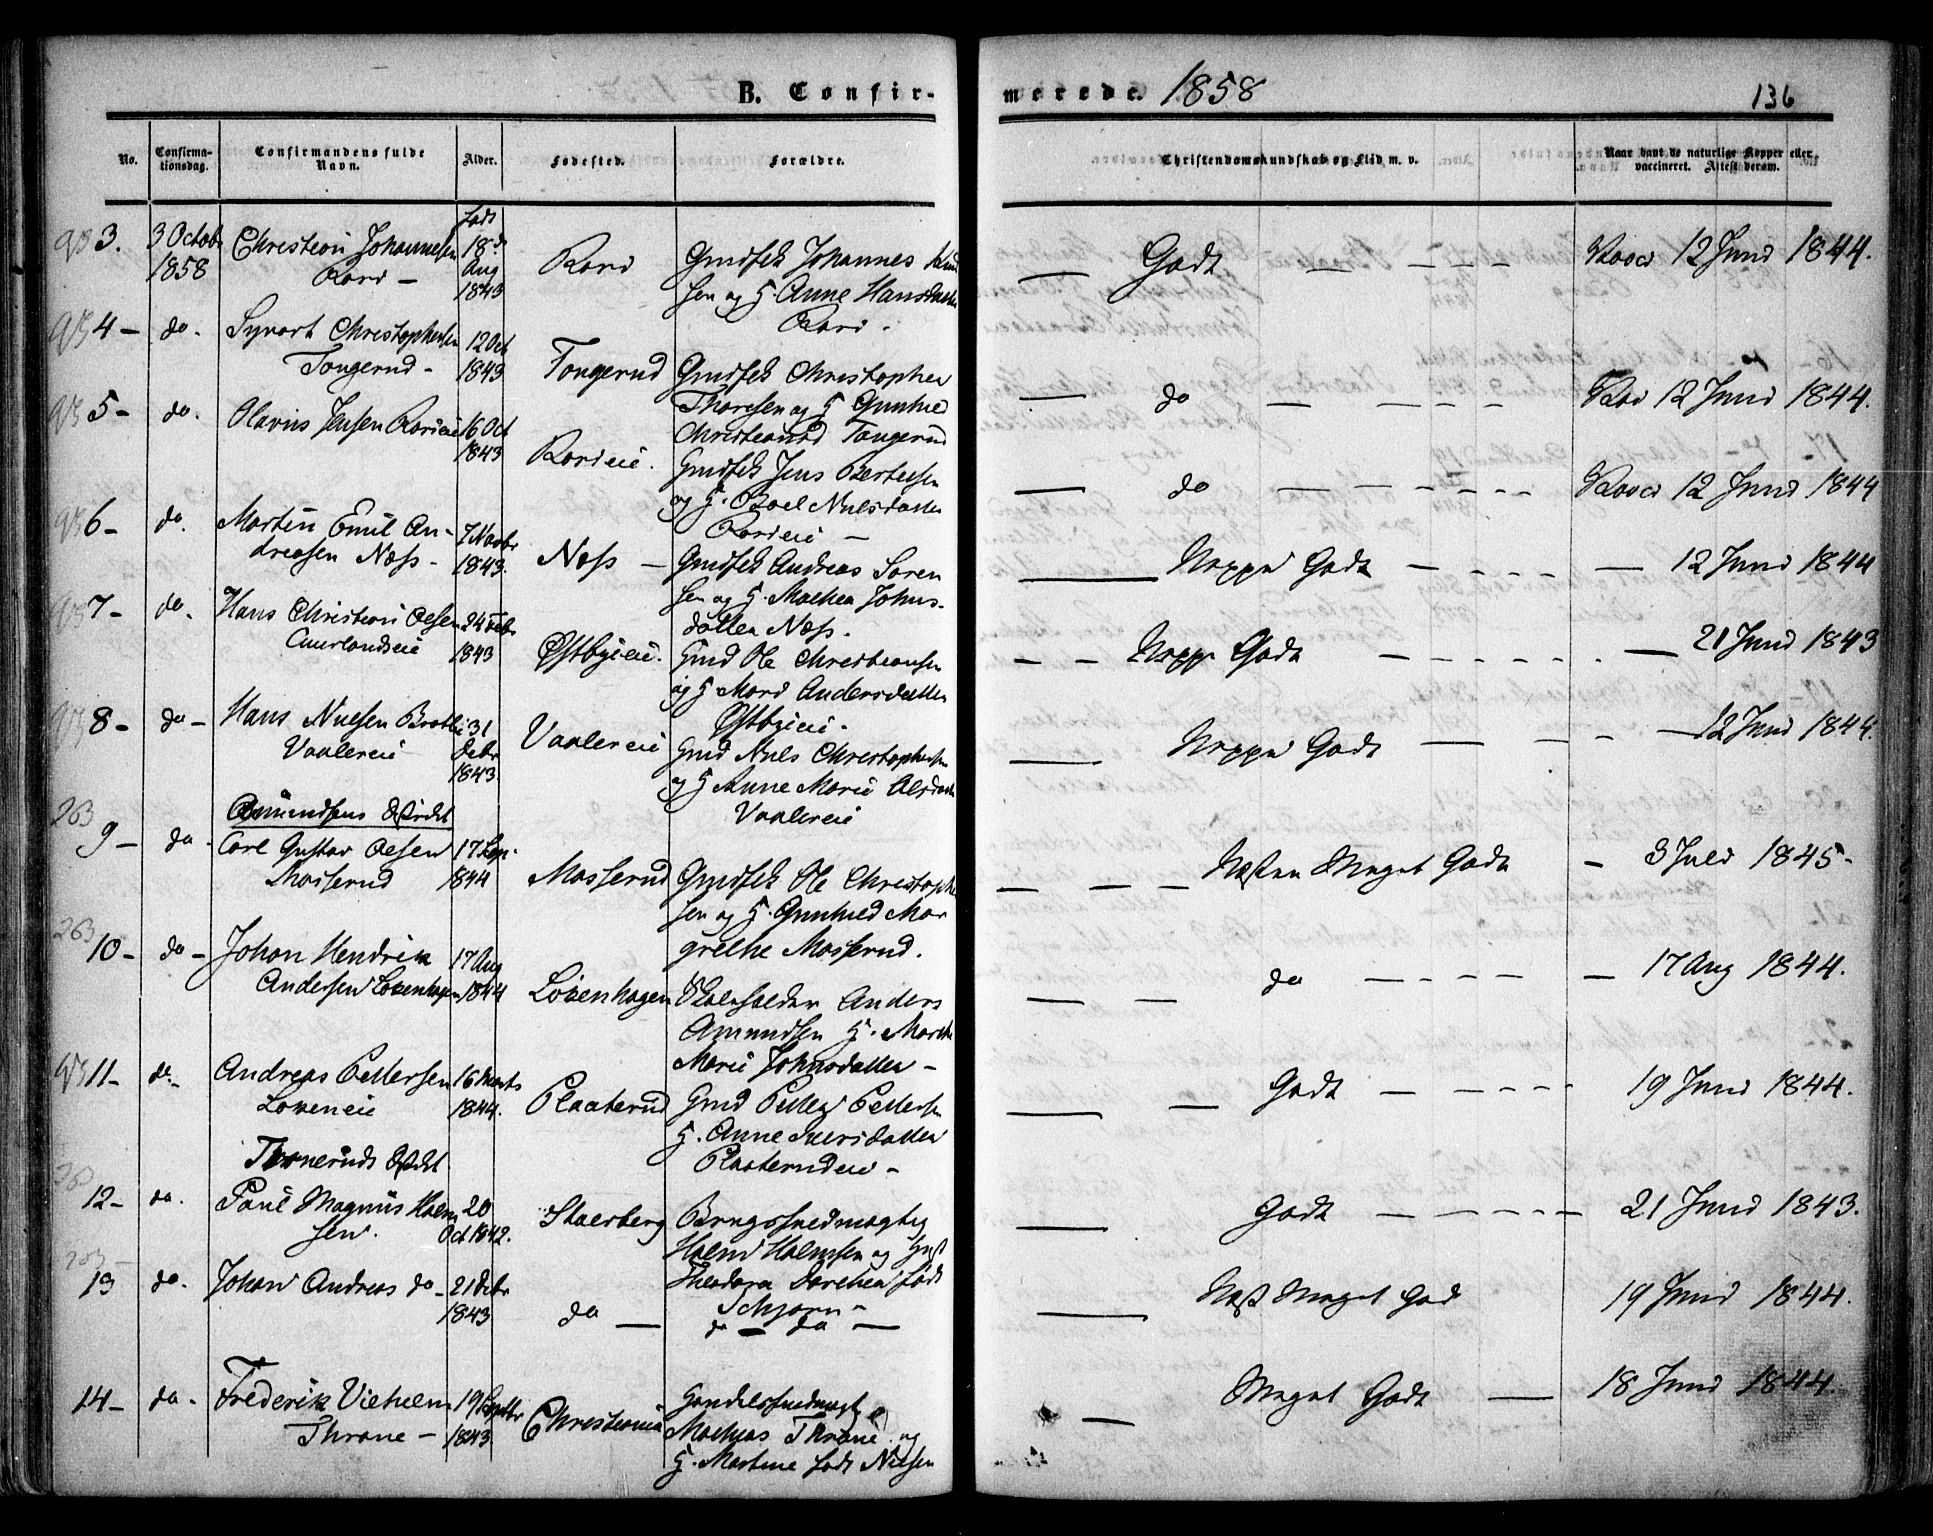 B. Confir-
merede. 1858
136
No.
Confirma-
tionsdag.
Confirmandens fulde
Navn.
Alder.
Fødested.
Forældre.
Christendomskundskab og Flid m. v.
Naar havt de naturlige Kopper eller
vaccineret. Attest derom.
3.
3 Octobr
1858
Christian Johannesen
Rori -
født
18de
Aug
1843
Rori
Gmdfek Johannes
sen og H. Anne Hansdatter
Rori -
Godt
12 Juni 1844.
4 -
do.
Syvart Christophersen
Tongerud -
12 Oct
1843
Tongerud
Gmdfek Christopher
Thoresen og H Gunhild
Tongerud
do
12 Juni 1844.
5 -
do.
Olavus Jensen Rorieie
16 Oct
1843
Rorieie.
Gmdfek Jens Bertelsen
og H. Boel Nilsdatter
Rorieie -
do
12 Juni 1844
6 -
do.
Martin Emil An-
dreasen Næss -
7 Novbr
1843.
Næss -
Gmdfek Andreas Søren
sen og H. Mathea Johns-
datter Næss.
Neppe Godt
12 Juni 1844
7 -
do.
Hans Christian Olsen
Aurlandseie
24 Febr
1843
Østbyeie.
Gmd Ole Christiansen
og H Mari Andersdatter
Østbyeie.
Neppe Godt
21 Juni 1843
8 -
do -
Hans Nilsen
Vaalereie
31
Debr
1843.
Vaalereie
Gmd Nils Christophersen
og H Anne Marie Olsdatter
Vaalereie
Neppe Godt
12 Juni 1844.
263
Amundsens Distrikt
9 -
do.
Carl Gustav Olsen
Mosserud
17 Sep.
1844
Mosserud
Gmdfek Ole Christopher
sen og H. Gunhild Mar
grethe Mosserud.
Næsten Meget Godt
3 Juli 1845 -
263
10 -
do -
Johan Hendrik
Andersen Løkenhagen
17 Aug
1844
Løkenhagen
Skoleholder Anders
Amundsen H. Marthe
Marie Johnsdatter -
do
17 Aug 1844.
11 -
do. -
Andreas Pettersen
Løkeneie
16 Marts
1844.
Plaaterud
Gmd Petter Pettersen
H. Anne Iversdatter
Plaaterudeie -
Godt
19 Juni 1844.
Distrikt
12 -
do.
Paul Magnus Holm
sen.
20
Oct 1842.
Stalsberg
Brugsfuldmægtig
Holm Holmsen og Hust
Theodora Dorthea født
Schjørn -
Godt
21 Juni 1843.
13
do.
Johan Andreas do -
21 Debr
1843
do -
do - do -
Næst Meget God
19 Juni 1844.
14 -
do.
Frederik Vilhelm
Thrane -
19 Septbr
1843.
Christiania
Handelsfuldmægt
Mathias Thrane og
H. Martine født Nilsen
Meget Godt
18 Juni 1844.